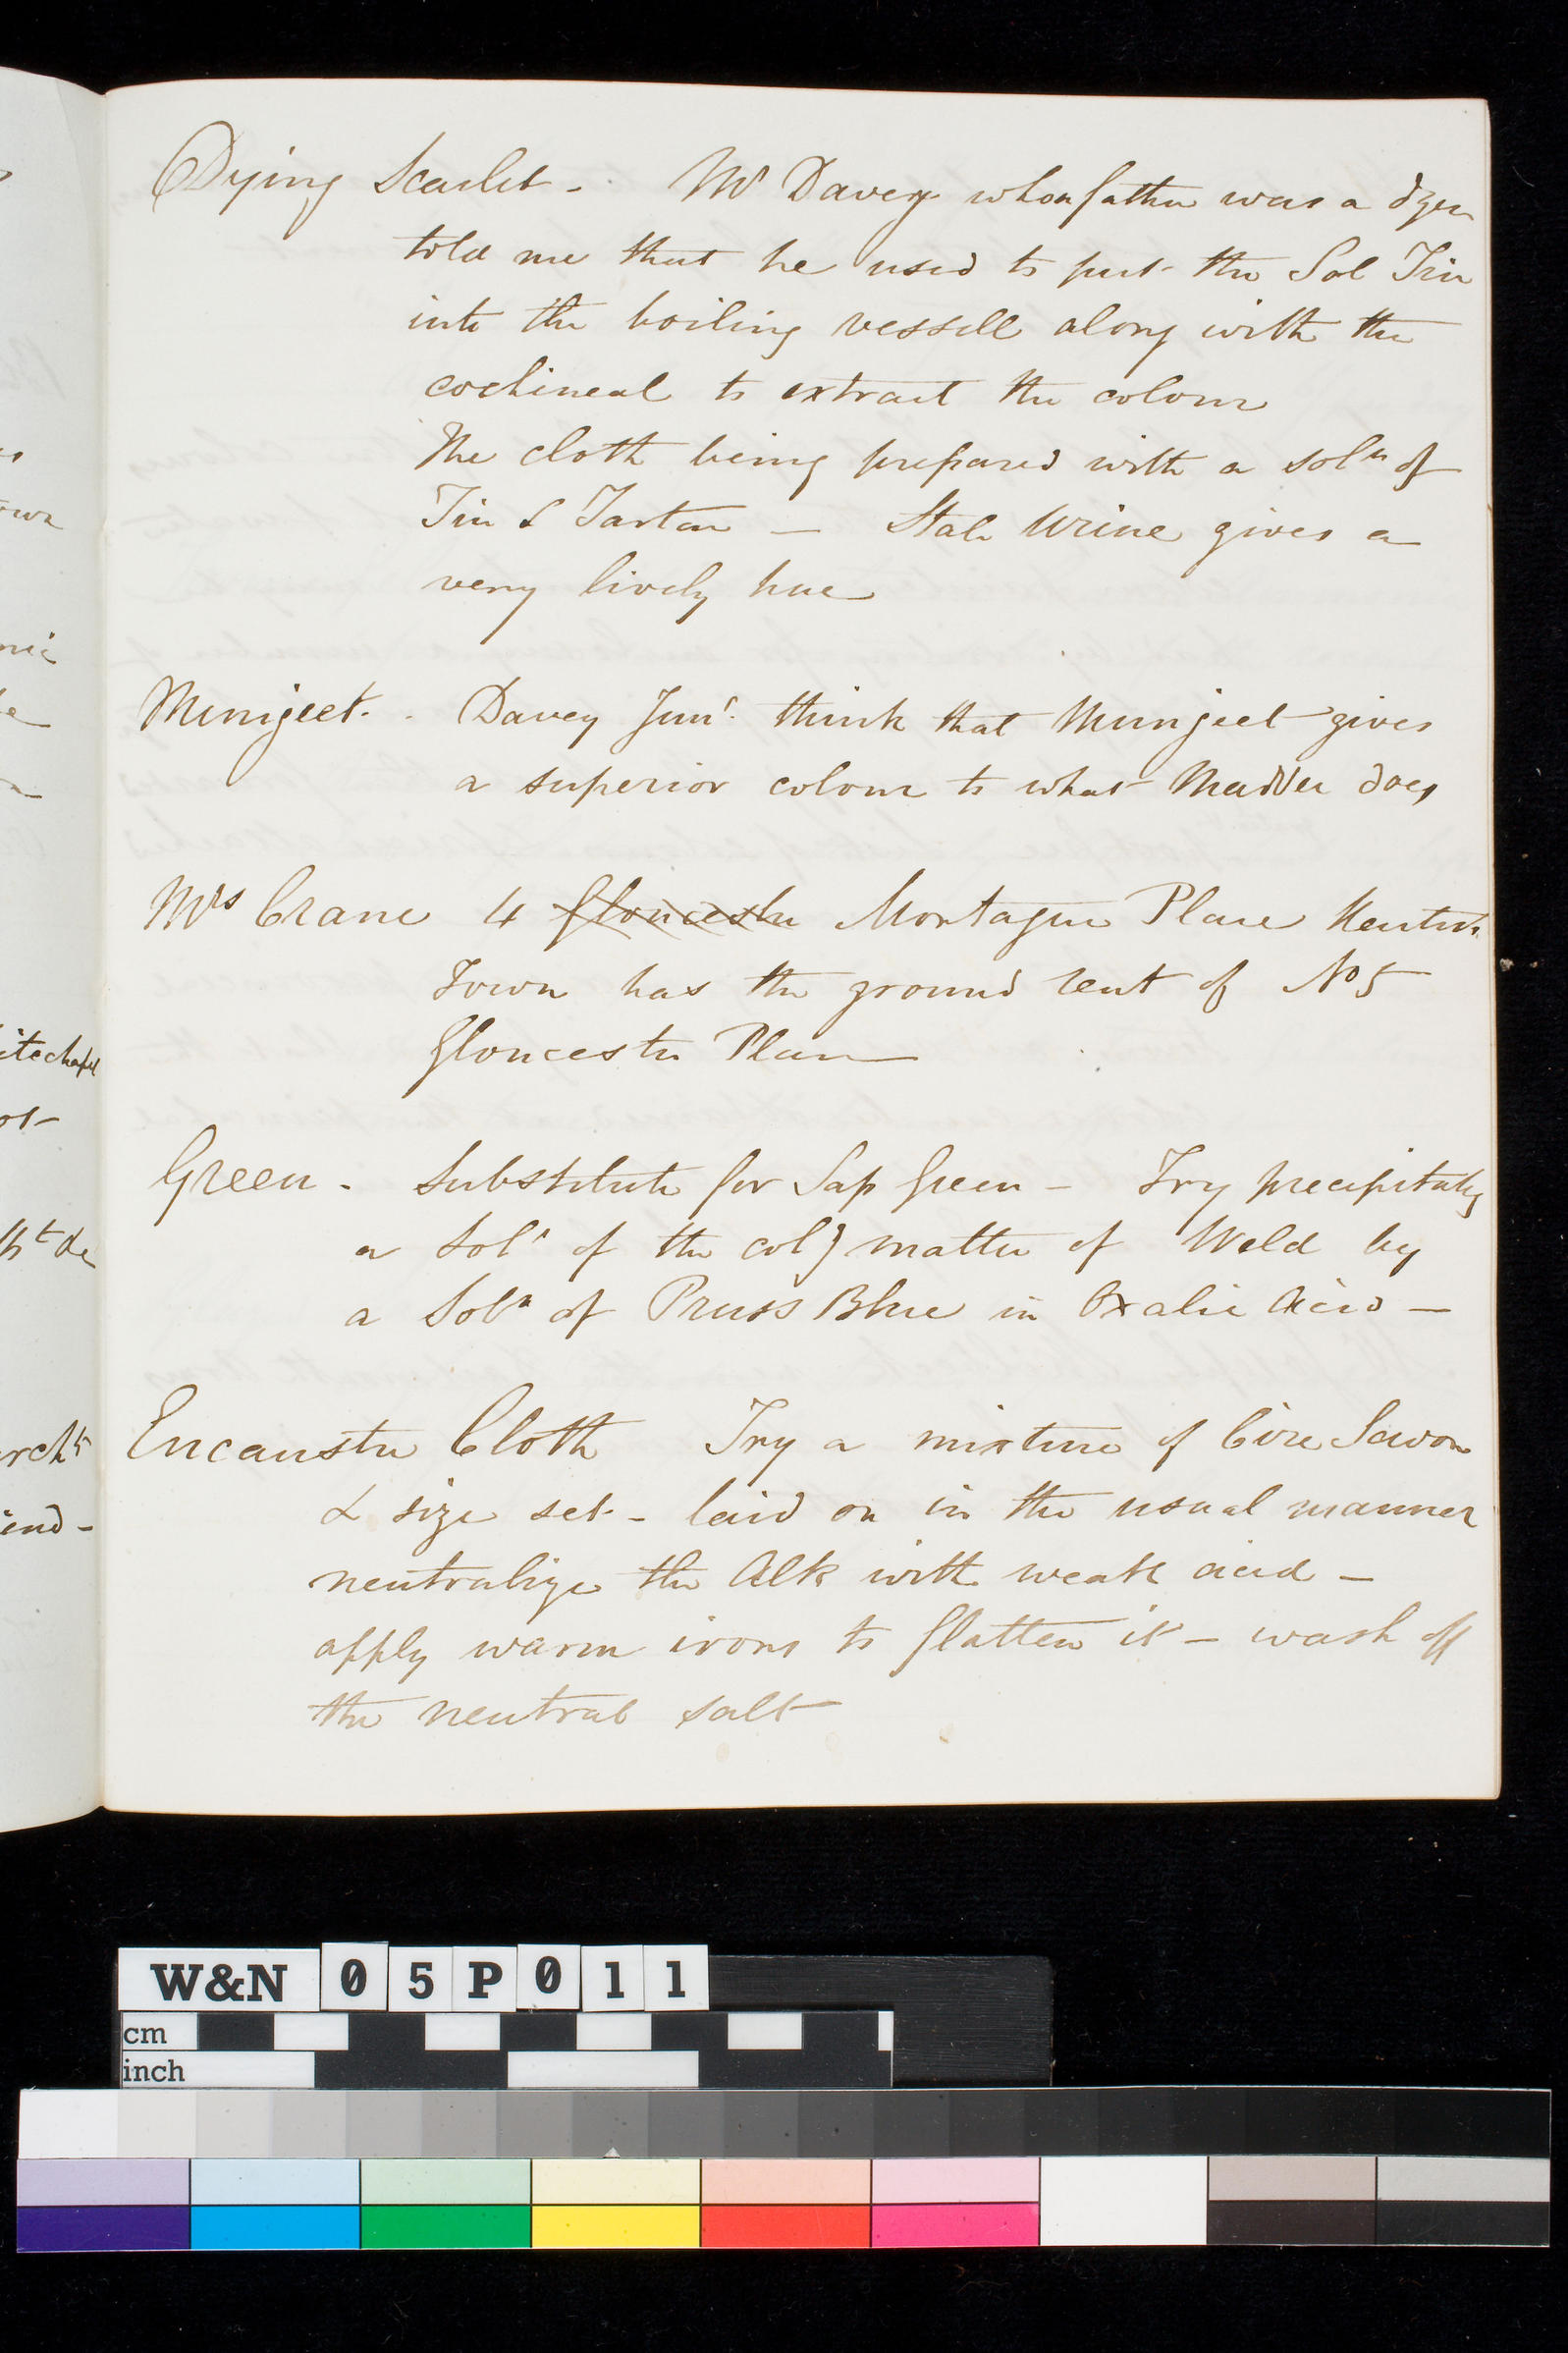 Dying Scarlet - Mr Davey whose father was a dyer
told me that he used to put the Sol Tin
into the boiling vessell along with the
cochineal to extract the colour
The cloth being prepared with a soln of
Tin & Tartar — Stale Urine gives a
very lively hue
Munjeet. Davey Junr. think that Munjeet gives
a superior colour to what Madder does
Mrs Crane 4 Gloucester Montague Place Kentish
Town has the ground rent of No 5
Gloucester Place
Green - Substitute for Sap Green - Try precipitatg
a Soln of the colg matter of Weld by
a Soln of Pruss Blue in Oxalic Acid —
Encaustic Cloth Try a mixture of Cire Savon
& size set - laid on in the usual manner
neutralize the Alk with weak acid —
apply warm irons to flatten it — wash off
the neutral salt
itechapel
W&N 05P011
cm
inch